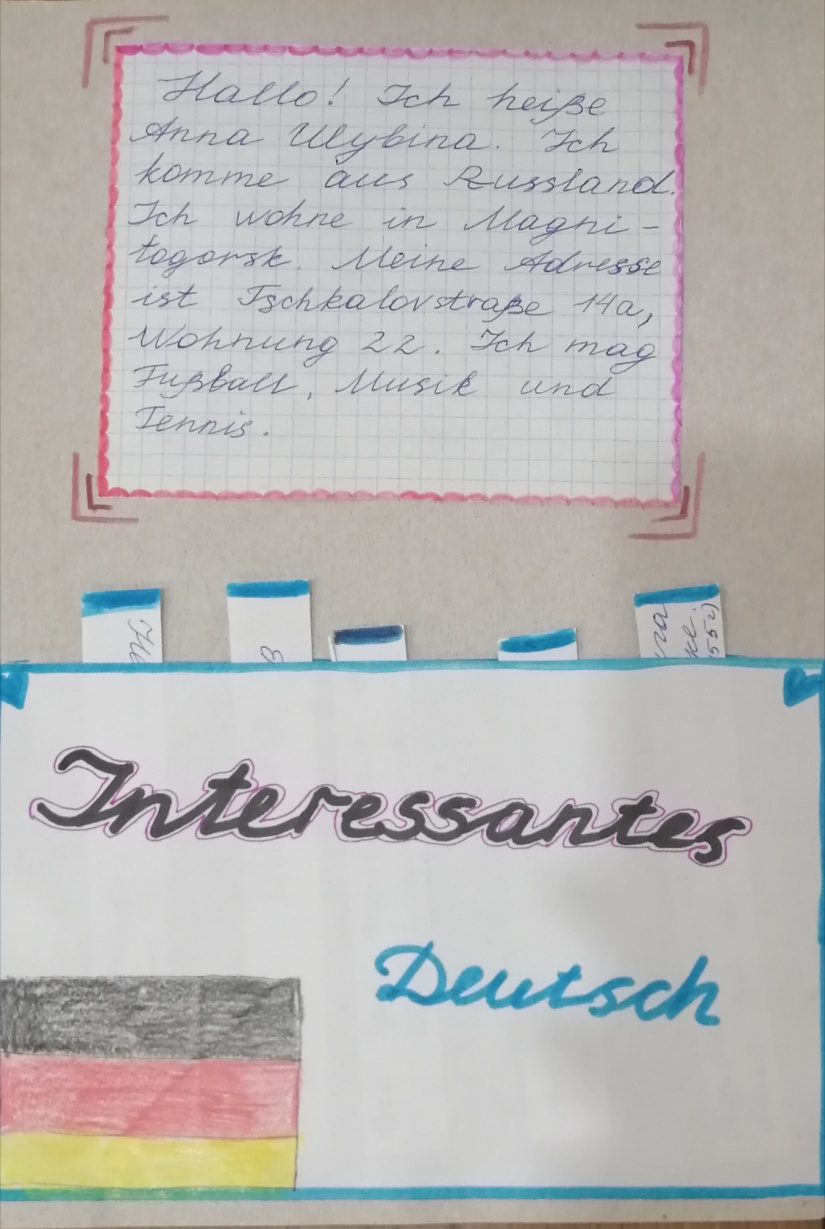 Hallo! Ich heiße
Anna Ulybina. Ich
komme aus Russland.
Ich wohne in Magni-
togorsk. Meine Adresse
ist Tschkalovstraße 14a,
Wohnung 22. Ich mag
Fußball, Musik und
Tennis.
Interessantes
Deutsch